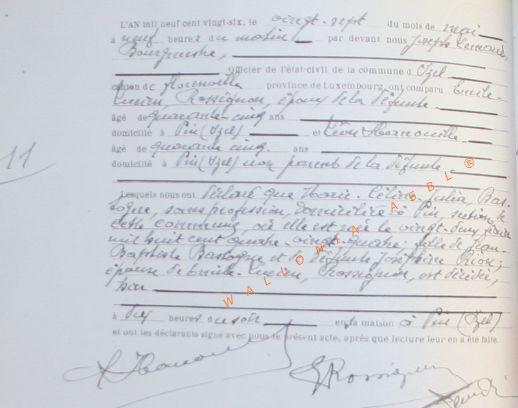 L'AN mil neuf cent vingt-six, le vingt-sept du mois de mai
à neuf heures du matin, par devant nous Joseph
Bourgmestre,
Officier de l'état-civil de la commune d' Izel
canton de Florenville province de Luxembourg, ont comparu Emile-
Lucien, Rossignon, époux de la défunte
âgé de quarante cinq ans
domicilié à Pin (Izel) et Léon
âgé de quarante cinq ans
domicilié à Pin (Izel) non parent de la défunte
11
Lesquels nous ont déclaré que Marie-Céline Julia Bas-
togne, sans profession, domiciliée à Pin, section de
cette commune, où elle est née le vingt-
mil huit cent quatre-vingt-quatre, fille de Jean-
Baptiste Bastogne et de défunte Joséphine
épouse de Emile-Lucien, Rossignon, est décédée,
hier
à heures du soir en sa maison à Pin (Izel)
et ont les déclarants signé avec nous le présent acte, après que lecture leur en a été faite.
E Rossignon
WALLONIA ASBL ®